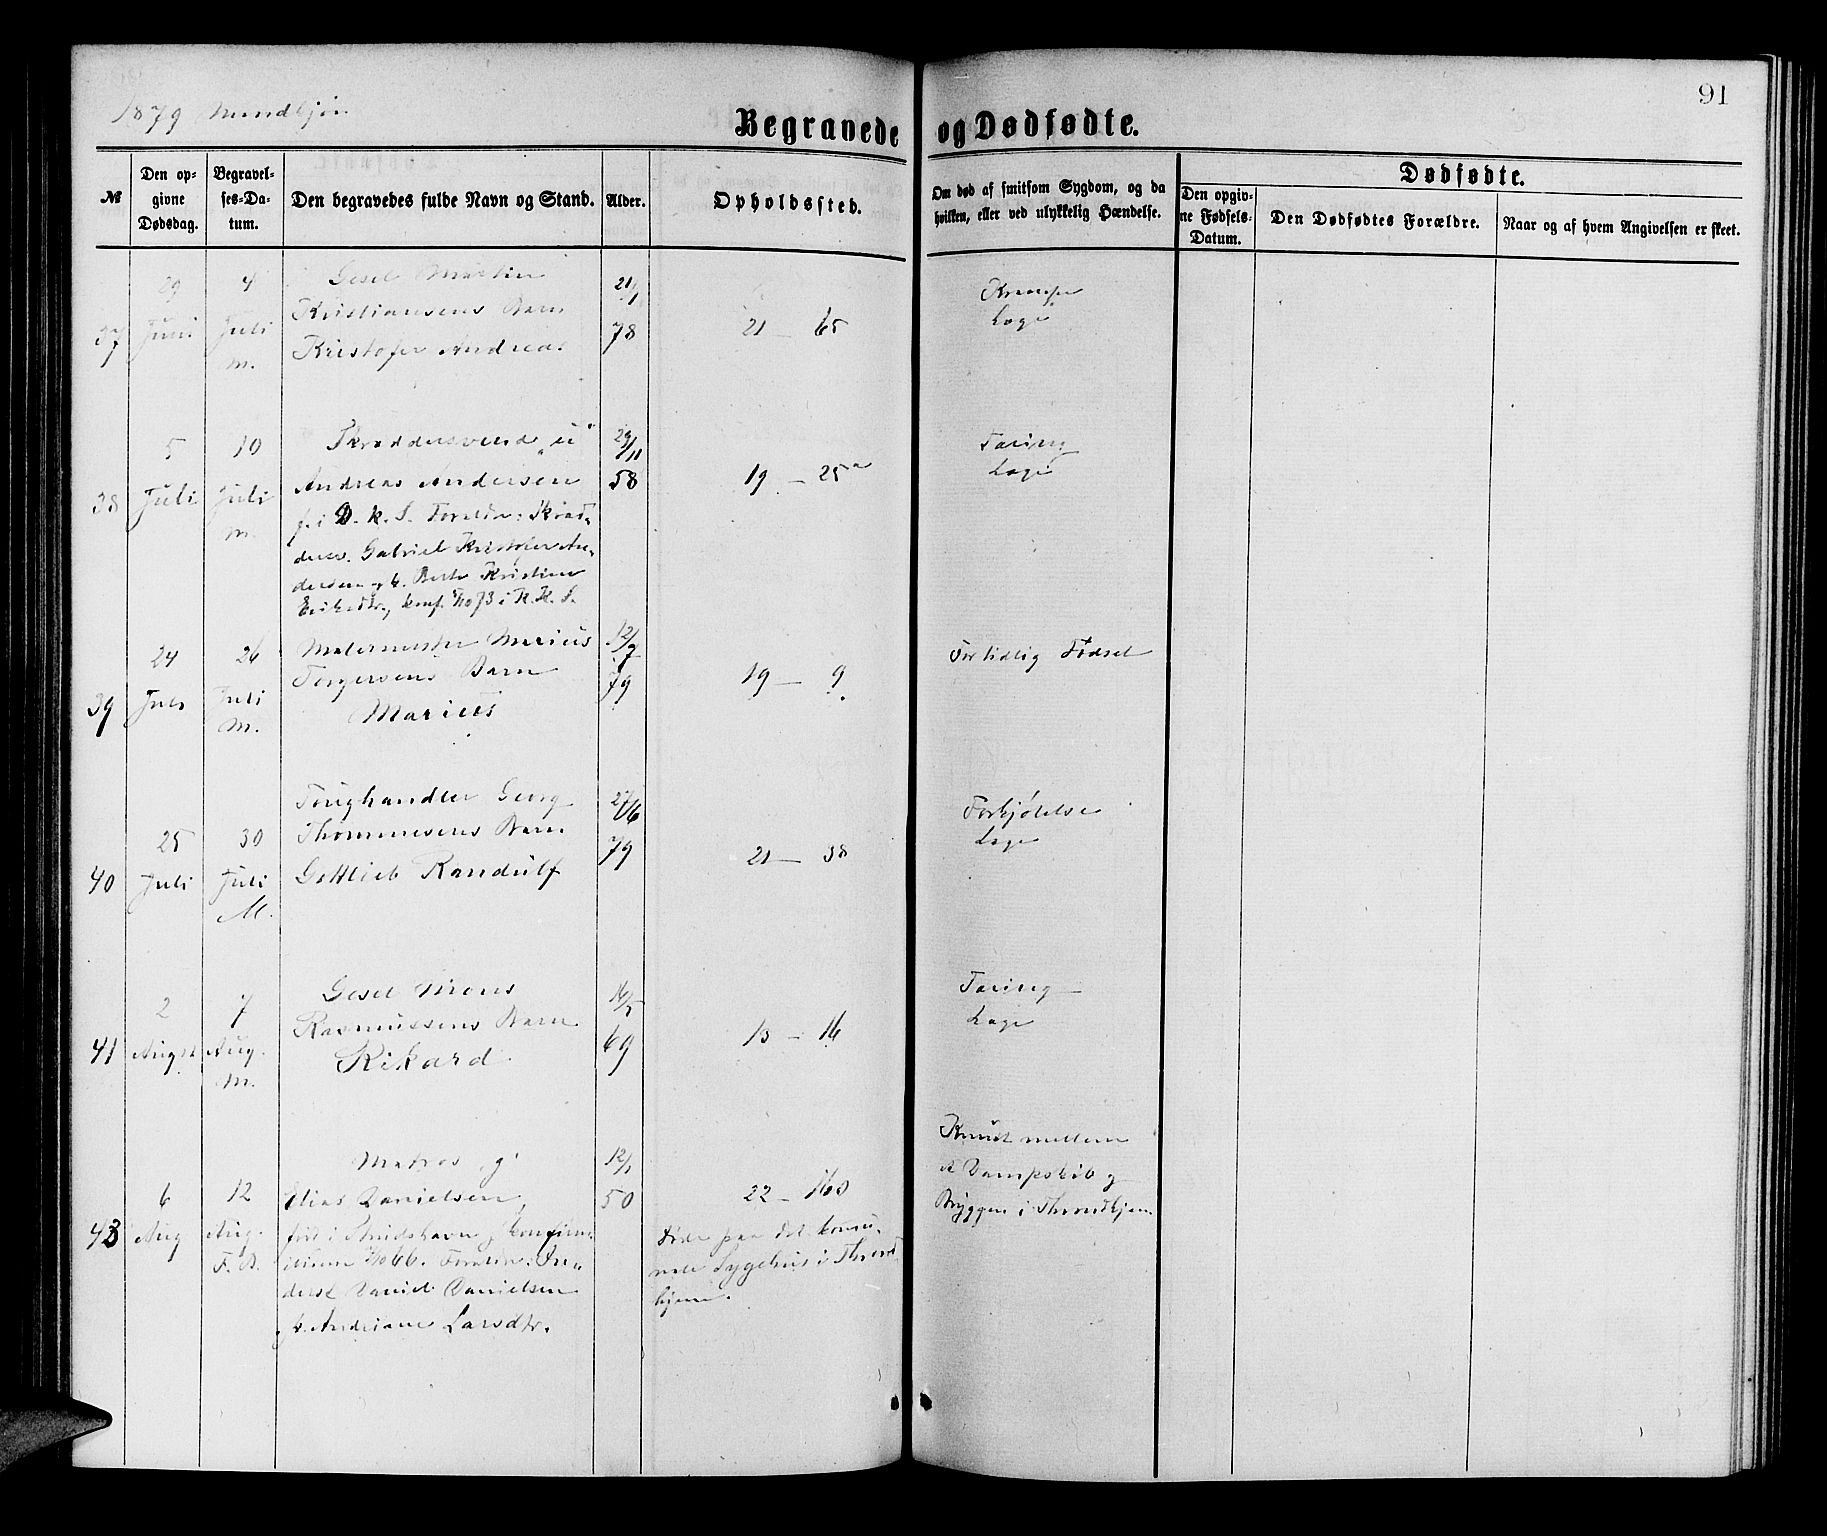 1879 Mandkjøn.
Begravede og Dødfødte.
91
№
Den opgivne Dødsdag.
Begravelses-Datum.
Den begravedes fulde Navn og Stand.
Alder.
Opholdssted.
Om død af smitsom Sygdom, og da hvilken, eller ved ulykkelig Hændelse.
Dødfødte.
Den opgivne Fødsels-Datum.
Den Dødfødtes Forældre.
Naar og af hvem Angivelsen er skeet.
37
29 Juni
4 Juli m.
Gesel Martin
Kristiansens Barn
Kristofer Andreas
21/1 78
21 — 65
Krampe
Læge
38
5 Juli
10 Juli m.
Skræddersvend „u"
Andreas Andersen
f. i D. k. S. Forældre: Skræd-
ders. Gabriel Kristofer An-
dersen og k. Berte Kristine
Eriksdtr., konf. 5/10 73 i K. K. S.
29/11 58
19 — 25a
Tæring
Læge
39
24 Juli
26 Juli M.
Malermester Marius
Torgersens Barn
Marius
12/7 79
19 — 9
For tidlig Fødsel
40
25 Juli
30 Juli M.
Toughandler Georg
Thommesens Barn
Gottlieb Randulf
27/6 79
21 — 38
Forkjølelse
Læge
41
2 August
7 Aug. m.
Gesel Mons
Rasmussens Barn
Rikard
16/5 69
13 — 16
Tæring
Læge
43
6 Aug
12 Aug. F. B.
Matros „g"
Elias Danielsen,
født i Smidshavn, konfirm.
Daniel Danielsen
Andriane Larsdtr.
12/1 50
22 — 160
Døde paa det kommu-
nale Sygehus i Thrond
hjem.
Knust mellem
et Dampskib og
Bryggen i Throndhjem